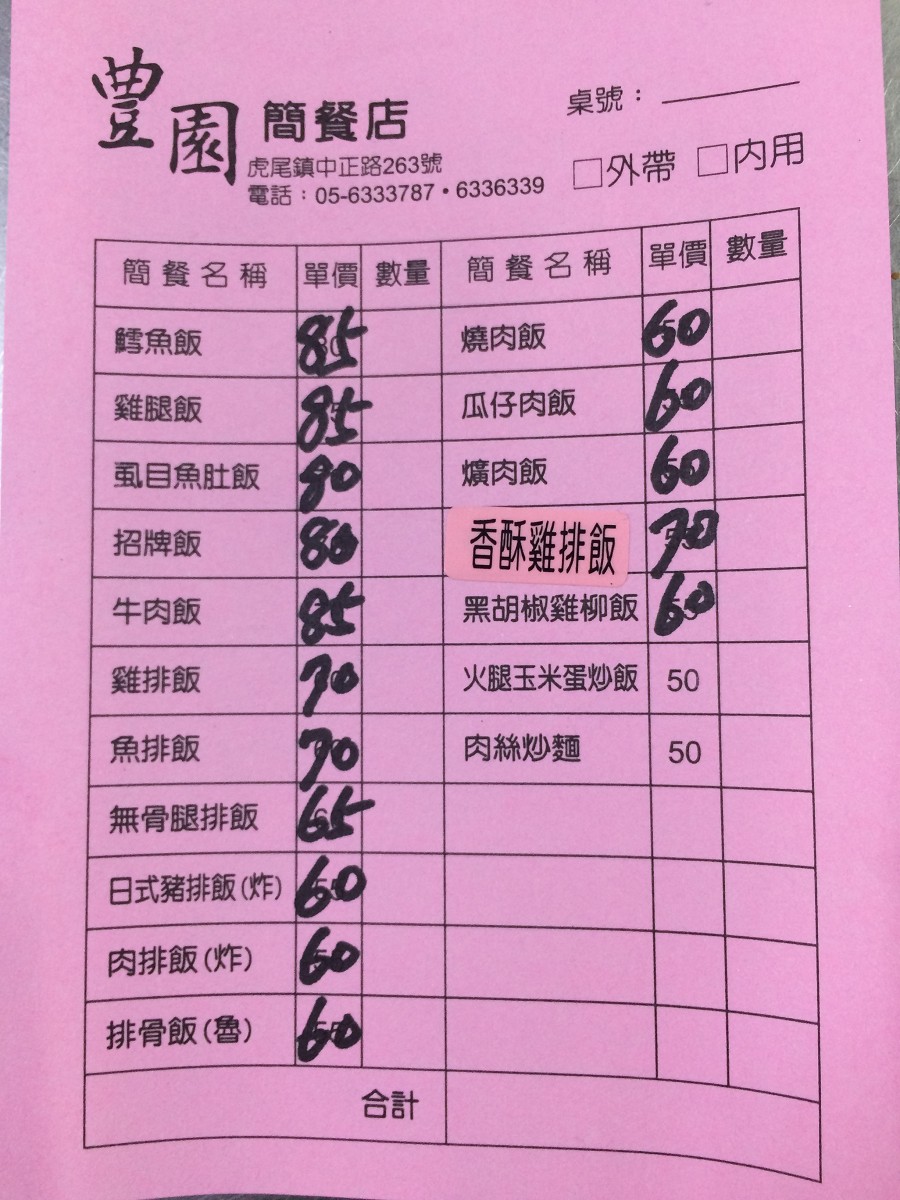 豊園 簡餐店
桌號：
虎尾鎮中正路263號
電話：05-6333787・6336339
□外帶 □內用
簡餐名稱 單價 數量 簡餐名稱 單價 數量
鱈魚飯 85 燒肉飯 60
雞腿飯 85 瓜仔肉飯 60
虱目魚肚飯 80 爌肉飯 60
招牌飯 80 香酥雞排飯 70
牛肉飯 85 黑胡椒雞柳飯 60
雞排飯 70 火腿玉米蛋炒飯 50
魚排飯 70 肉絲炒麵 50
無骨腿排飯 65
日式豬排飯(炸) 60
肉排飯(炸) 60
排骨飯(魯) 60
合計